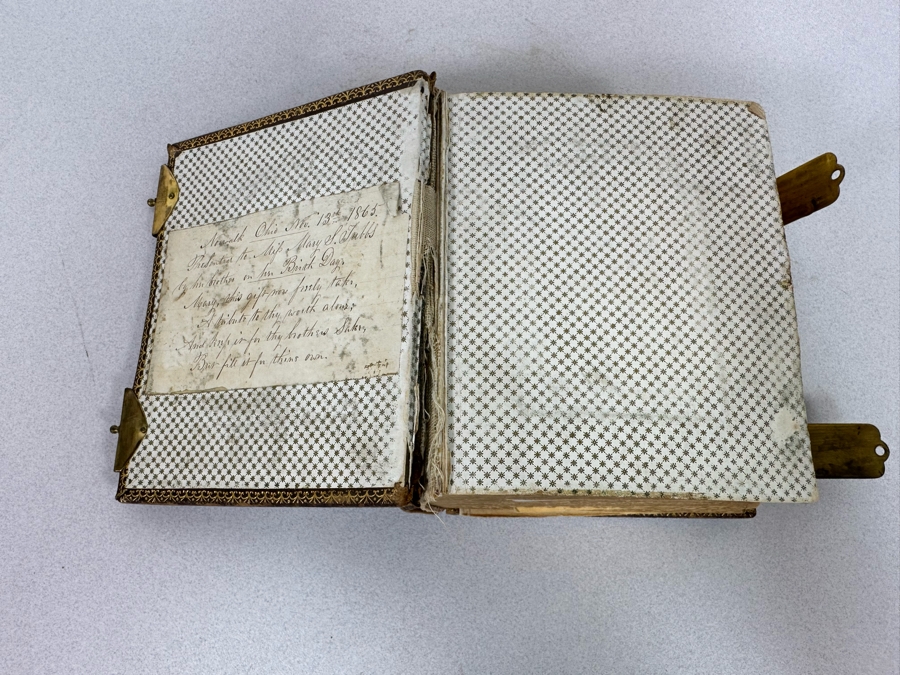 Ohio Feb. 13th 1865.
Presented to Miss Mary S. Stubbs
by her brother on her Birth Day.
Mary, this gift now freely take,
A tribute to thy worth alone;
And keep it for thy brother's sake,
But fill it for thine own.